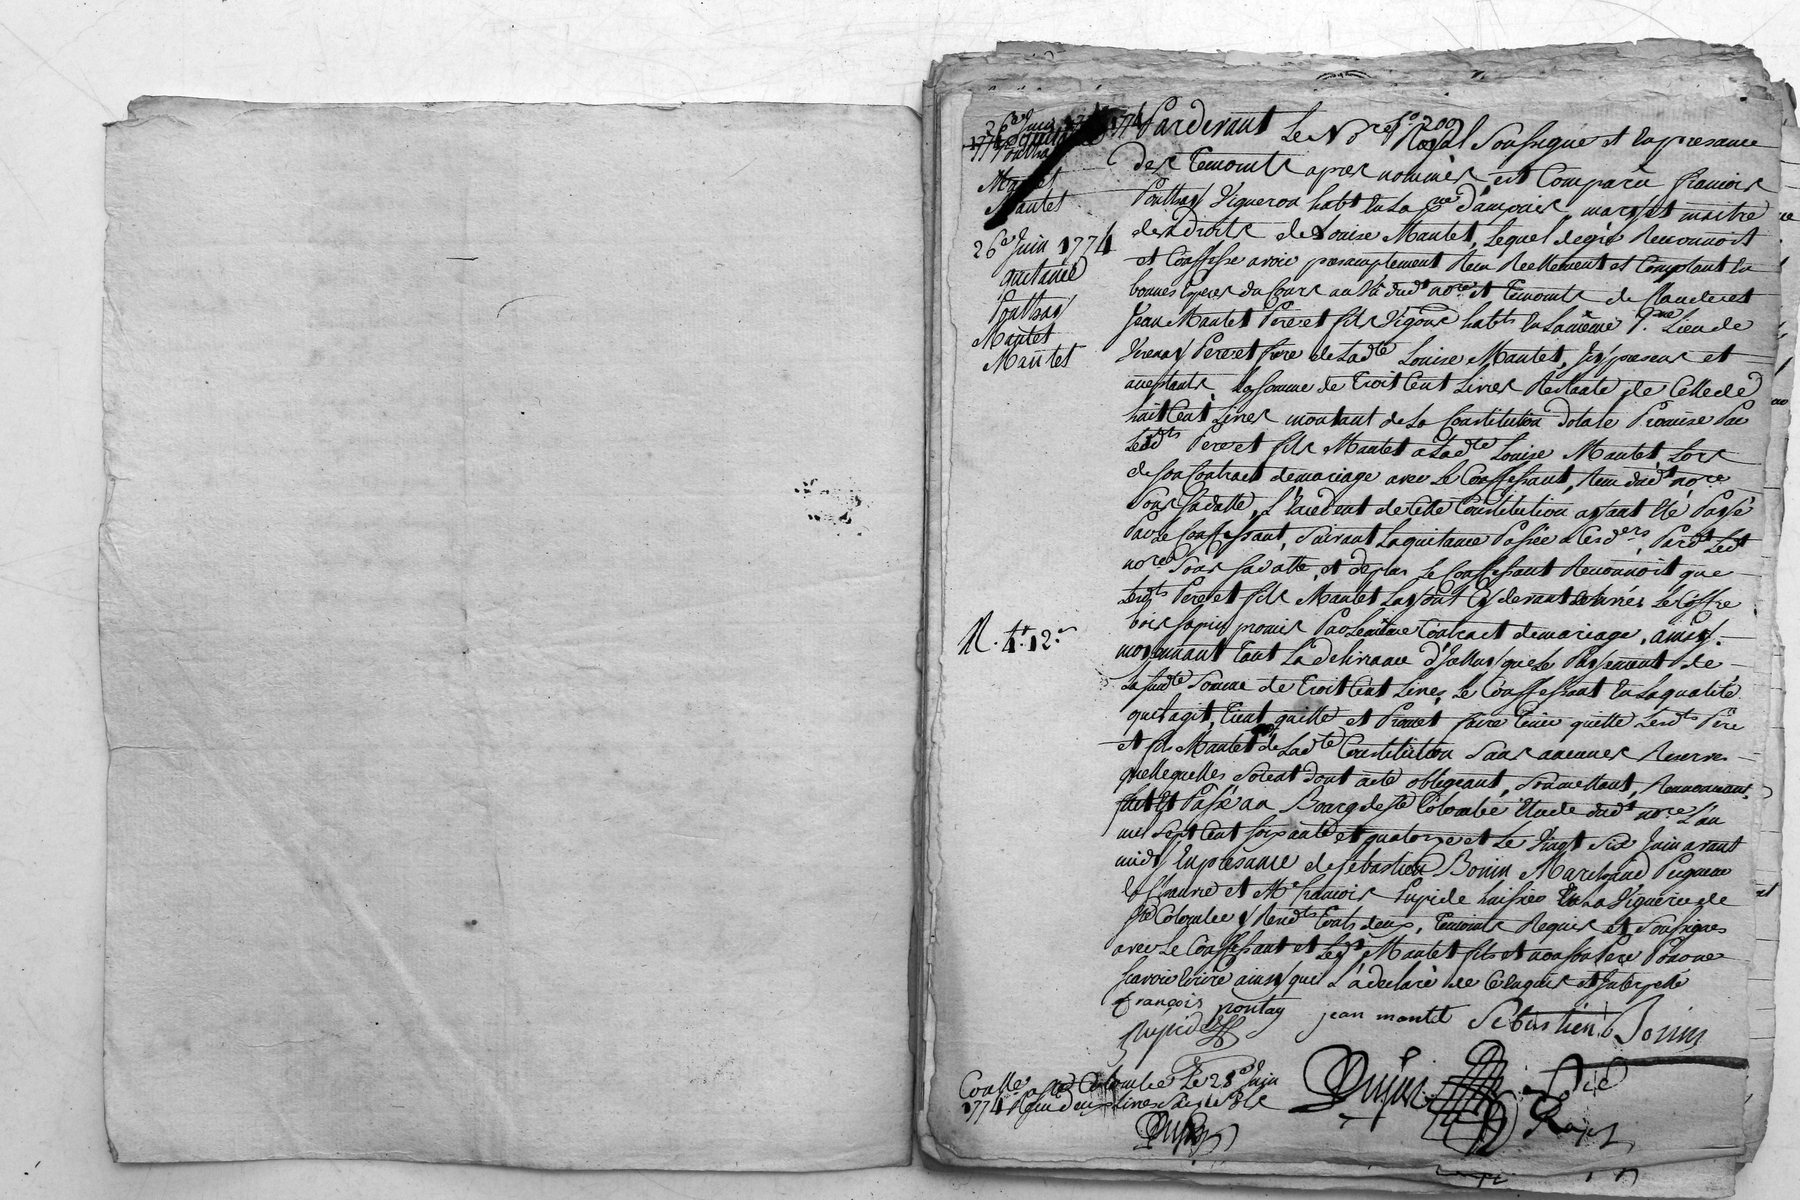 26e Juin 1774
quitance
Ponthay
Mantet
Mantet
R. 4tt 12s
Pardevant Le Nre Royal Soussigné et En presance
des Temoints apres nommés, est Comparu francois
Ponthay Vigneron habt En La pse d'ampuis, mary et maitre
des Droits de Louise Mantet, Lequel degré Reconnoit
et Confesse avoir presamptement Reçu Reellement et Comptant En
bonnes Espeses du Cours au Vû dudt nore et Temoints de Claude et
Jean Mantet Pere et fils Vigons habts En La même Psse Lieu de
Verenay Pere et frere de Ladte Louise Mantet, Icy presens et
aceptants La somme de Trois Cent Livres Restante de Celle de
huit Cent Livres montant de La Constitution Dotale Promise Par
Lesdts Pere et fils Mantet a Ladte Louise Mantet Lors
de son Contract de mariage avec Le Confessant, Reçu dudt nore
Sous Sa datte, L'Excedent de Cette Constitution ayant Eté Payé
Par Le Confessant, Suivant La quitance Passée Par dt Ledt
nore Sous Sa datte, et de plus Le Confessant Reconnoit que
Lesdts Pere et fils Mantet Luy ont Cy devant délivrés Le Coffre
bois sapin promis Par Le même Contract de mariage, ainsy
moyennant Tant La delivrance d'Icelluy que Le Payement de
La susdte Somme de Trois Cent Livres, Le Confessant En La qualité
qu'il agit, Tient quitte et Promet faire Tenir quitte Lesdts Pere
et fils Mantet de Ladte Constitution Sans aucunes Reserves
quellequelles Soient dont acte obligeant, Soumettant, Renonceant,
fait Et Passé au Bourg de Ste Colombe Etude dudt nore L'an
mil Sept Cent soixante et quatorze et Le Vingt Six Juin avant
midy En presance de Sébastien Bonin Marchand Peigneur
de Chanvre et Me francois Rupide huissier En La Viguerie de
Ste Colombe y Residts Touts deux, Temoints Requis et Soussignés
avec Le Confessant et Ledt Mantet fils et non son Pere Pour ne
sçavoir Ecrire ainsy qu'il L'a declaré de Ce Enquis et Interpellé
françois pontay jean mantet Sebastien Bonin
Rupide
Conlle a Ste Colombe Le 28e Juin
1774 Reçu